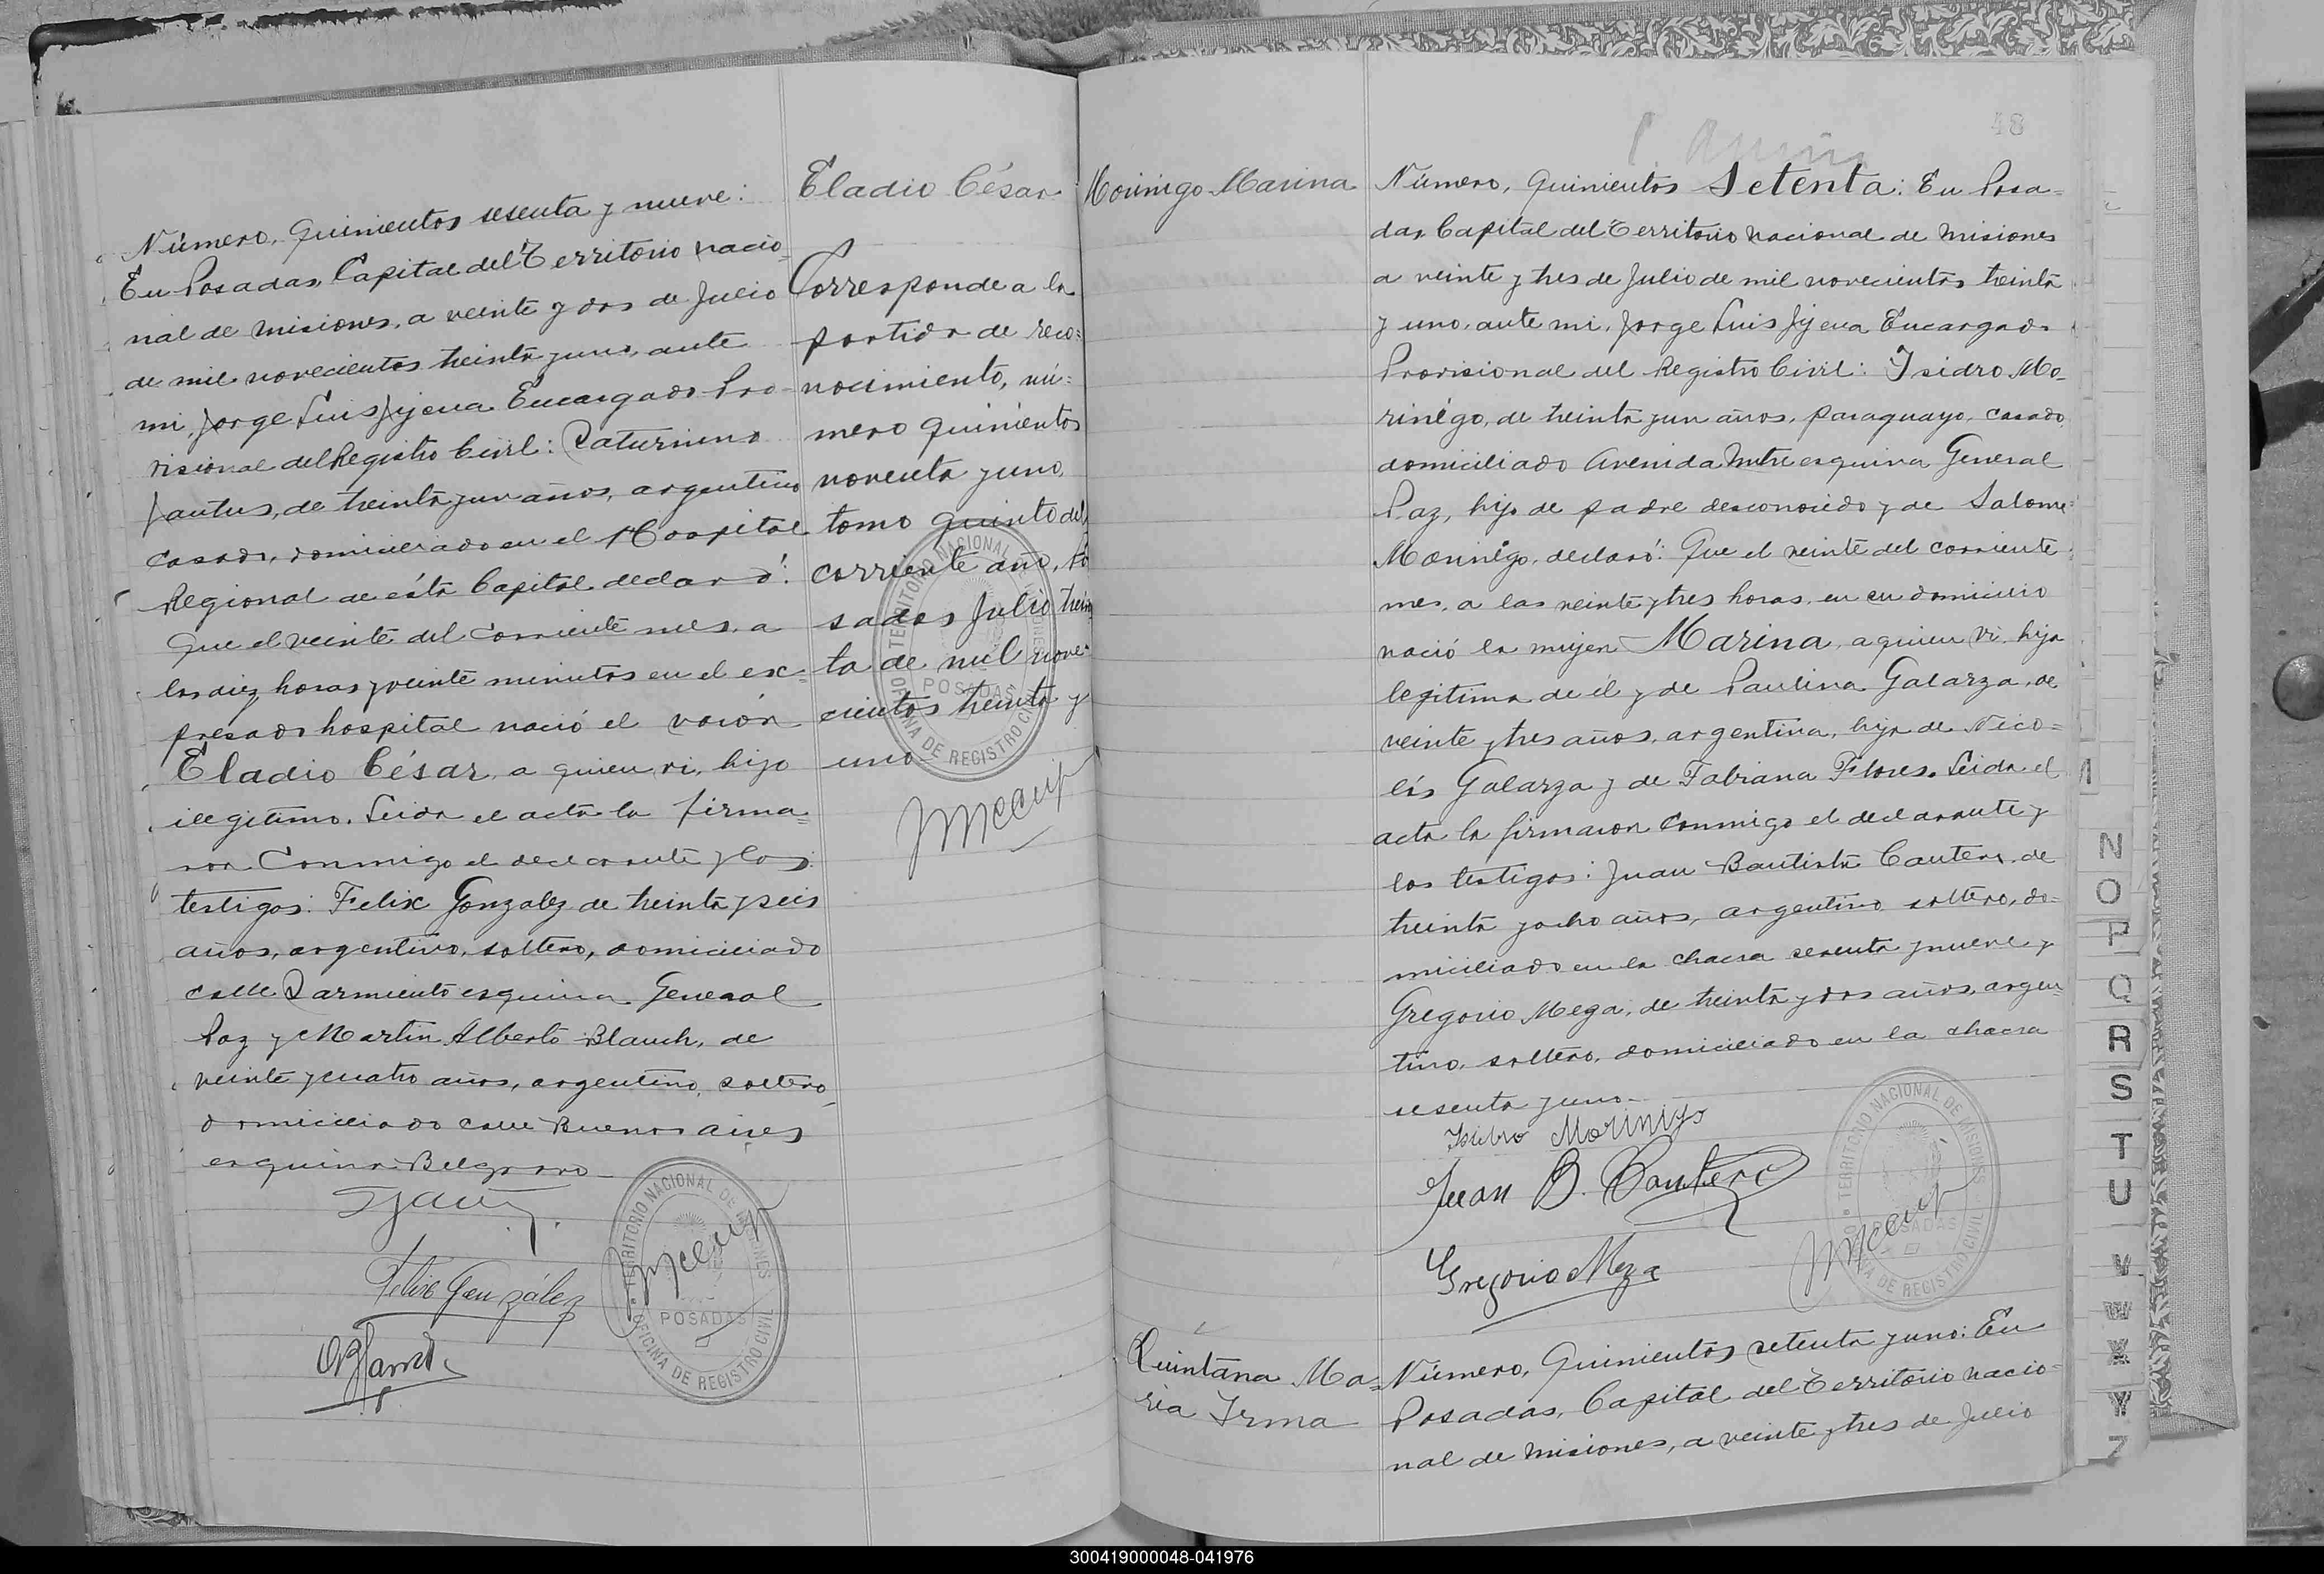 Número, Quinientos sesenta y nueve:
En Posadas, Capital del Territorio nacio-
nal de Misiones, a veinte y dos de Julio
de mil novecientos treinta y uno, ante
mi, Jorge Luis Jijena Encargado Pro-
visional del Registro Civil: Saturnino
de treinta y un años, argentino
casado, domiciliado en el Hospital
Regional de ésta Capital declaró:
Que el veinte del corriente mes, a
las diez horas y veinte minutos en el ex-
presado hospital nació el varón
Eladio César, a quien vi, hijo
ilegitimo. Leida el acta la firma=
ron conmigo el declarante y los
testigos: Felix Gonzalez de treinta y seis
años, argentino, soltero, domiciliado
calle Sarmiento esquina General
Paz y Martin Alberto Blanch, de
veinte y cuatro años, argentino, soltero,
domiciliado calle Buenos Aires
esquina Belgrano
Felix González
TERRITORIO NACIONAL DE MISIONES
POSADAS
OFICINA DE REGISTRO CIVIL
Eladio César
Corresponde a la
partida de reco=
nocimiento, nú=
mero quinientos
noventa y uno,
tomo quinto del
corriente año, Po
sadas Julio trein
ta de mil nove=
cientos treinta y
uno
TERRITORIO NACIONAL DE MISIONES
POSADAS
OFICINA DE REGISTRO CIVIL
48
Morinigo Marina
Número, Quinientos Setenta: En Posa=
das, Capital del Territorio nacional de Misiones
a veinte y tres de Julio de mil novecientos treinta
y uno, ante mi, Jorge Luis Jijena Encargado
Provisional del Registro Civil: Isidro Mo-
rinigo, de treinta y un años, paraguayo, casado,
domiciliado Avenida Mitre esquina General
Paz, hijo de padre desconocido y de Salome
Morinigo, declaró: Que el veinte del corriente
mes, a las veinte y tres horas, en su domicilio
nació la mujer Marina, a quien vi, hija
legitima de él y de Paulina Galarza, de
veinte y tres años, argentina, hija de Nico=
lás Galarza y de Fabiana Flores. Leida el
acta la firmaron conmigo el declarante y
los testigos: Juan Bautista Cantero, de
treinta y ocho años, argentino, soltero, do=
miciliado en la chacra sesenta y nueve y
Gregorio Meza, de treinta y dos años, argen
tino, soltero, domiciliado en la chacra
sesenta y uno.
Isidro Morinigo
Juan B. Cantero
Gregorio Meza
TERRITORIO NACIONAL DE MISIONES
POSADAS
OFICINA DE REGISTRO CIVIL
Quintana Ma=
ria Irma
Número, Quinientos setenta y uno: En
Posadas, Capital del Territorio nacio=
nal de Misiones, a veinte y tres de Julio
N
O
P
Q
R
S
T
U
V
W
X
Y
Z
300419000048-041976